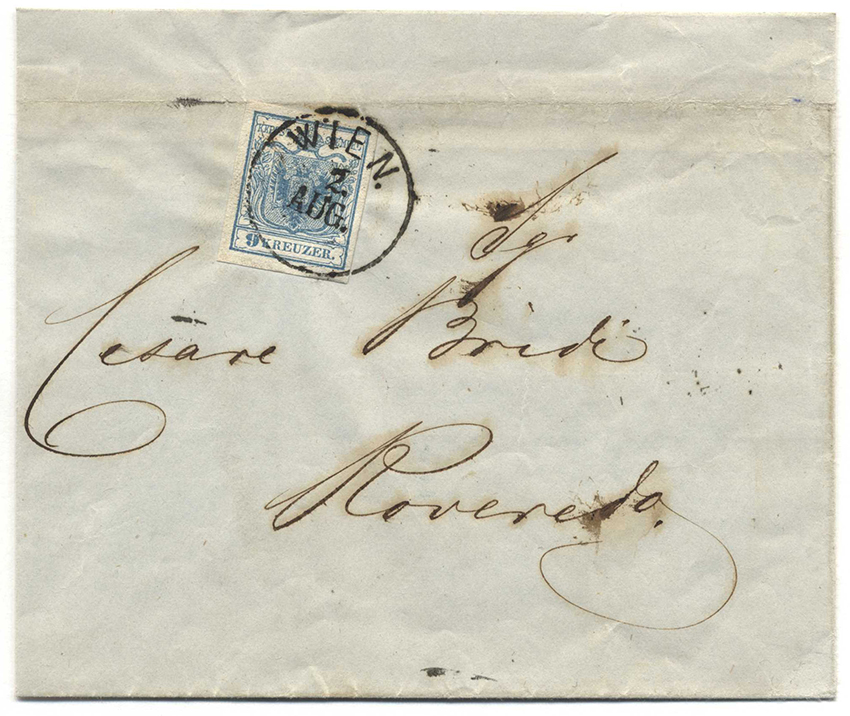 WIEN.
2.
AUG.
9 KREUZER.
Sgr
Cesare Bridi
Roveredo.